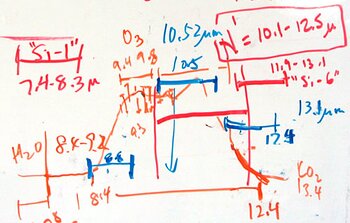 "Si-1"
7.4-8.3μ
O3
9.4 9.8
10.52μm
10.5
N' = 10.1-12.5μ
11.9-13.1
"Si-6"
9.3
13.1μ
12.4
H2O
8.4-9.2
8.8
8.4
12.4
CO2